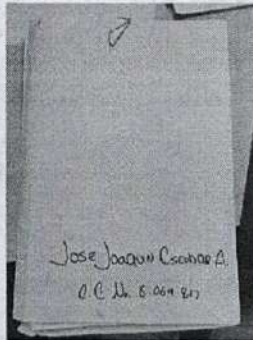 Jose Joaquin Escobar A.
C.C No. 8.064.817